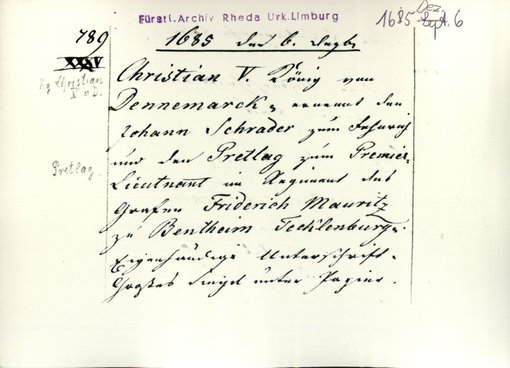 Fürstl. Archiv Rheda Urk. Limburg
1685 Dec. 6
Sept.
789
1685 den 6. Dezbr.
XXXV
Christian V. König von
Dennemarck, ernennt den
Johann Schrader zum Fehnrich
und den Pretlag zum Premier-
Lieutnant im Regiment des
Grafen Friderich Mauritz
zu Bentheim Tecklenburg.
Eigenhändige Unterschrift.
Großes Siegel unter Papier.
Kg Christian
V v. D.
Pretlag